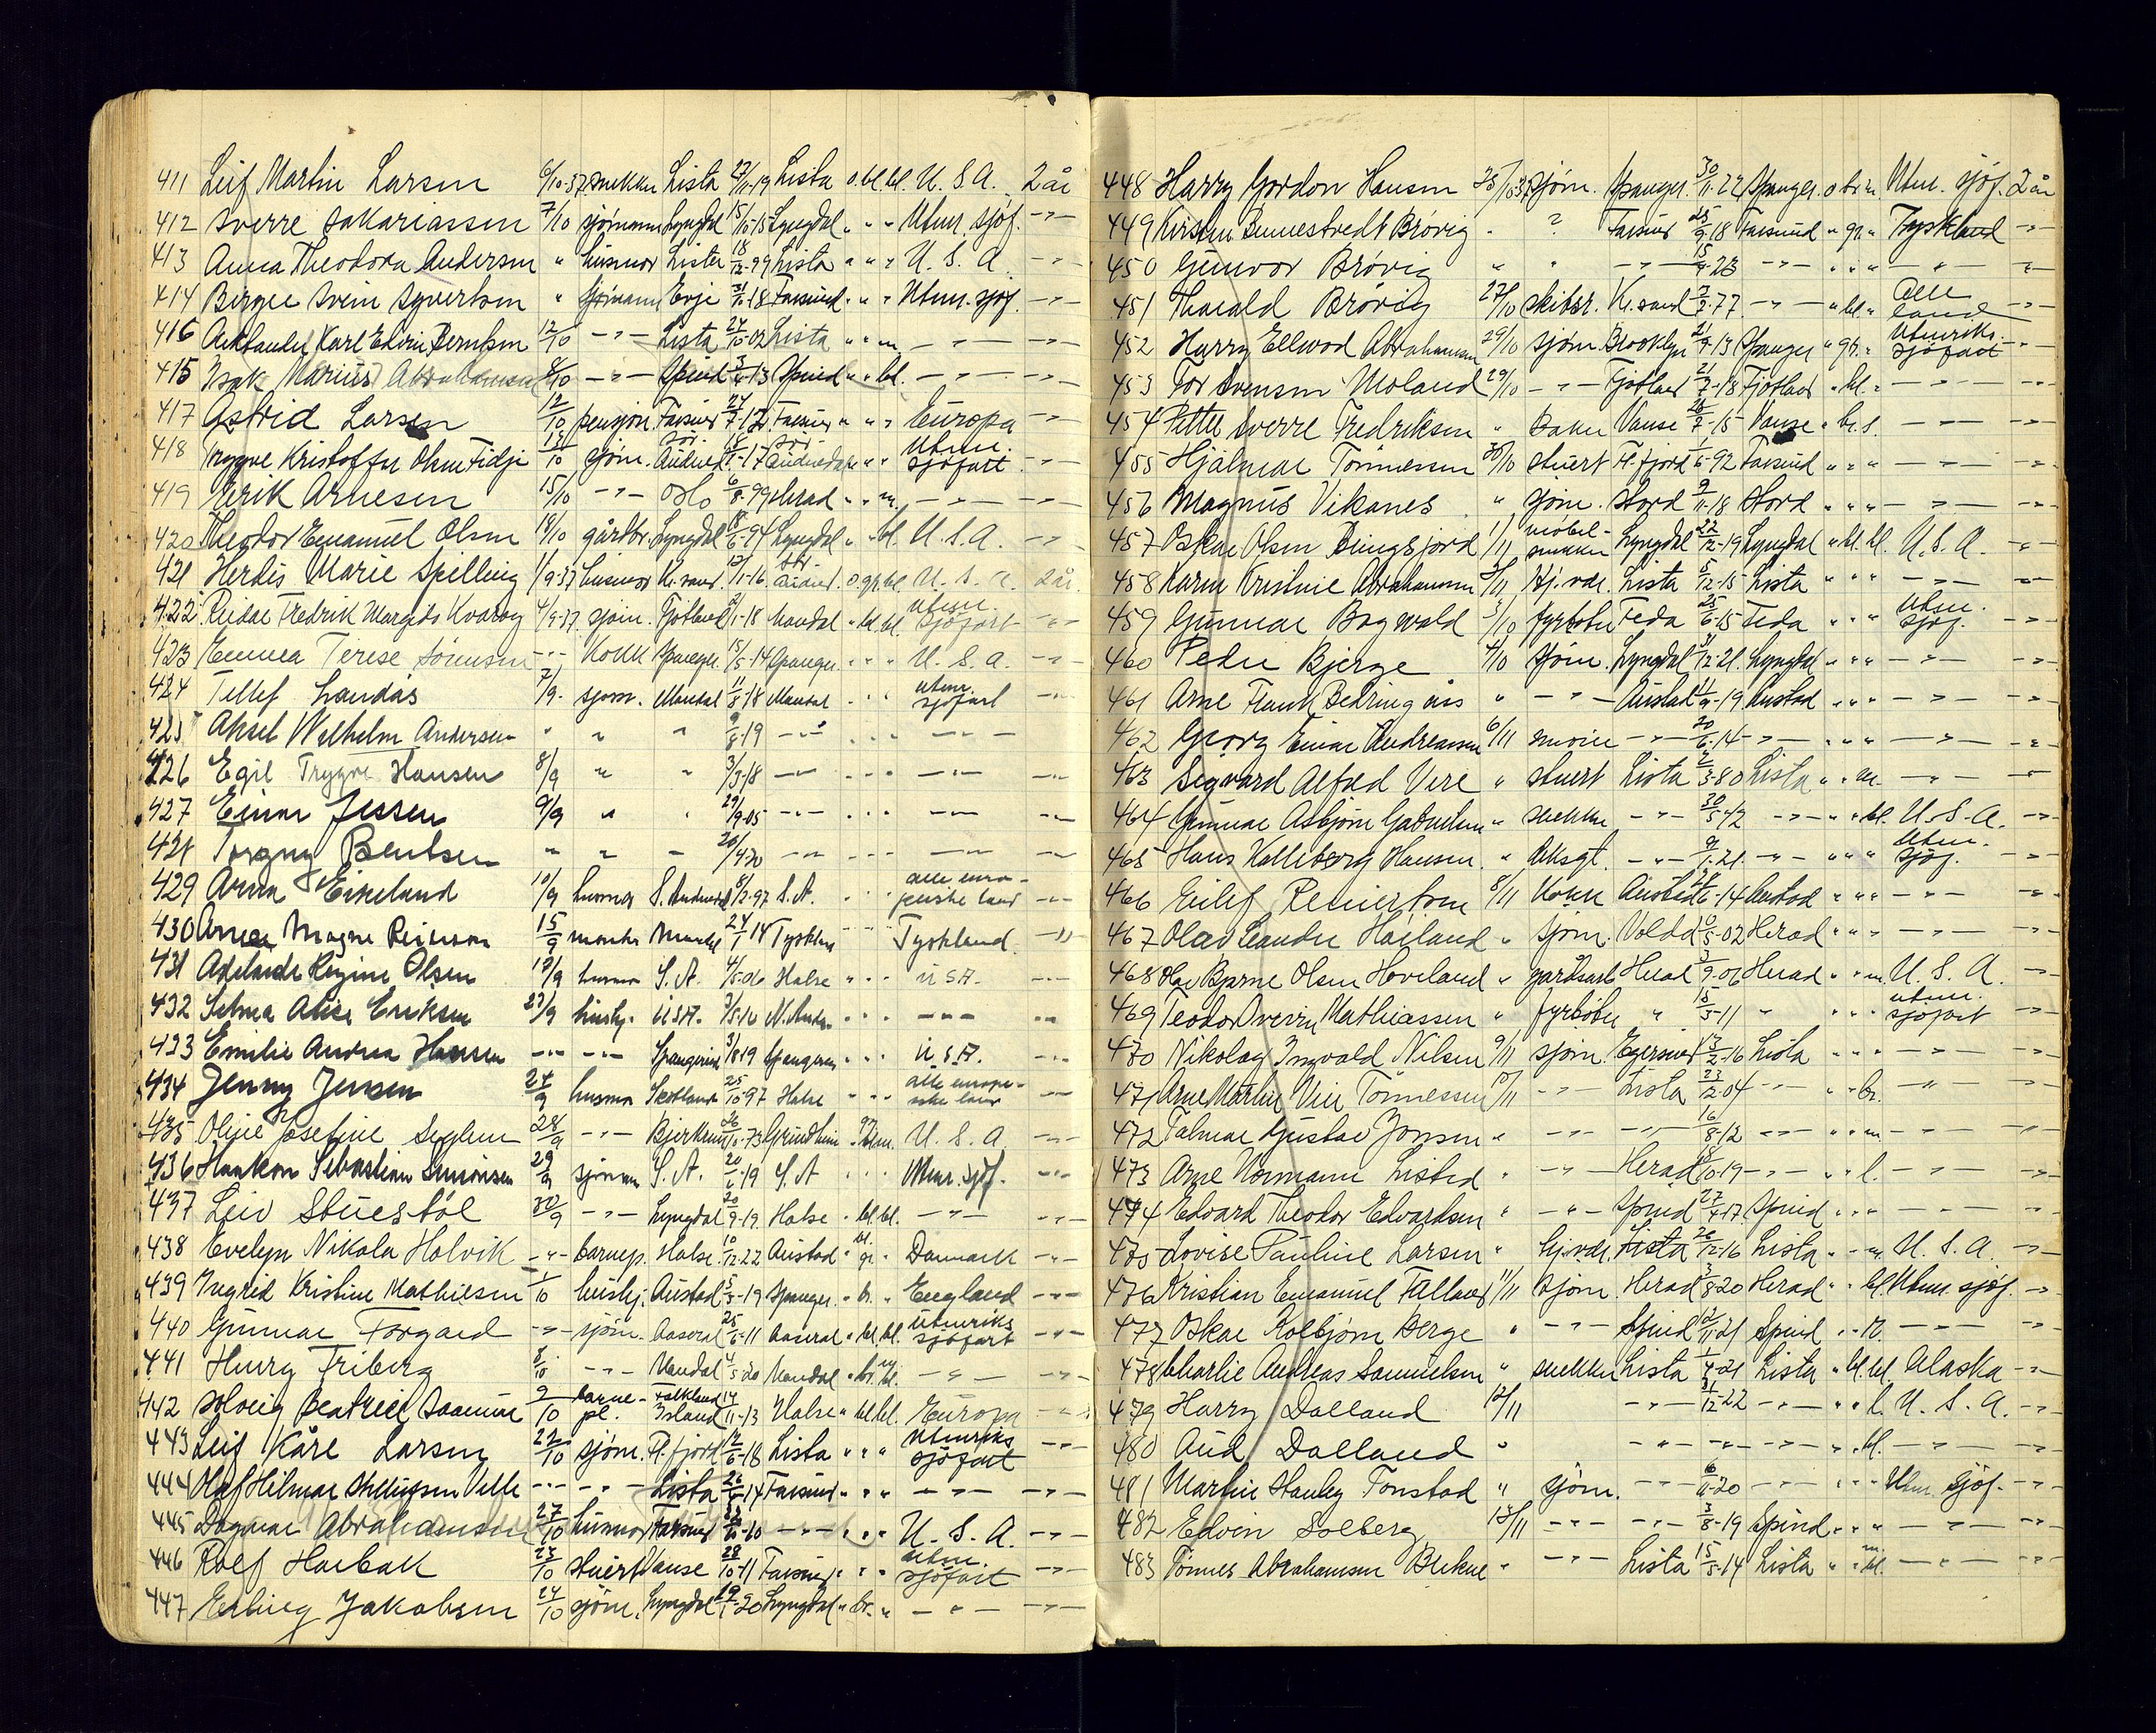 411 Leif Martin Larsen 6/10-37 snekker Lista 27/11-19 Lista o. bl. bl. U. S. A. 2 år
412 Sverre Sakariassen 7/10 sjømann Lyngdal 15/10-15 Lyngdal " " " Utenr. sjøf. -"-
413 Anna Theodora Andersen " husmor Lista 18/12-99 Lista " " " U. S. A. -"-
414 Birger Svein Syvertsen " sjømann Evje Farsund " " " Utenr. sjøf. -"-
416 Karl Edvin Berntsen 12/10 -"- Lista 24/10-02 Lista " " m. -"- -"-
415 Isak Marius Abrahamsen 8/10 -"- Spind 3/4-13 Spind " " bl. -"- -"-
417 Astrid Larsen 12/10 pensjon. Farsund 24/7-12 Farsund " " " Europa -"-
418 Trygve Kristoffer Olsen Fidje 14/10 sjøm. Sør-Audnedal Sør-Audnedal " " " Utenr. sjøfart -"-
419 Erik Arnesen 15/10 -"- Oslo 6/8-99 Herad " " m. -"- -"-
420 Theodor Emanuel Olsen 18/10 gårdbr. Lyngdal 18/6-94 Lyngdal " " bl. U. S. A. -"-
421 Herdis Marie Spilling 1/9-37 husmor Kr.sand 12/1-16 Sør-Audned. o gr. bl. U. S. A. 2 år.
422 Reidar Fredrik Margido Kvaroy 4/9-37 sjøm. Fjotland 2/1-18 Mandal " bl. bl. Utenr. sjøfart -"-
423 Emma Terese Sørensen -"- Kokk Spanger. 15/5-14 Spanger. " " " U. S. A. -"-
424 Tellef Landås 7/9- sjøm. Mandal 11/8-18 Mandal " " utenr. sjøfart -"-
425 Aksel Wilhelm Andersen " " " 9/8-19 -"- " " " -"-
426 Egil Trygve Hansen 8/9 " " 3/3-18 -"- " " " -"- -"-
427 Einar Jessen 9/9 " " 29/9-05 -"- " " " -"- -"-
428 Torgny Bentsen " " " 26/4-20 -"- " " " -"- -"-
429 Anna Eikeland 10/9 husmor S. Audnedal 8/2-97 S. A. " " alle euro-peiske land -"-
430 Magne Reinson 15/9 montør Mandal 24/1-14 Tyskland " " " Tyskland -"-
431 Adelaide Regine Olsen 18/9 husmor S. A. 4/5-06 Halse " " " U S A. -"-
432 Selma Alise Eriksen 23/9 hushj. U S A. 3/5-16 N. Audn. " " " -"- -"-
433 Emilie Andrea Hansen -"- -"- Spangereid 3/8-19 Spangereid " " " U. S. A. -"-
434 Jenny Jensen 24/9 husmor Skotland 25/10-97 Halse " " " alle europe-iske land -"-
435 Olene Josefine Seglem 28/9 -"- Bjerkreim 26/10-73 Grindheim " U. S. A. -"-
436 Haakon Sebastian Simonsen 29/9 sjømann S. A. 20/1-19 S. A " " Utenr. sjøf. -"-
437 Leiv Stuestøl 30/9 -"- Lyngdal 20/9-19. Halse " bl. bl. -"- -"-
438 Evelyn Nikola Holvik -"- barnep. Halse 10/12-22 Austad " bl. gr. " Danmark -"-
439 Ingrid Kristine Mathiesen 1/10 hushj. Austad 5/3-19 Spanger. " br. " England -"-
440 Gunnar Torgard -"- sjøm. Aaseral 25/6-11 Aaseral " bl. bl. Utenriks sjøfart -"-
441 Henry Friberg 8/10 -"- Mandal 4/5-20 Mandal " br. bl. -"- -"-
442 Solveig Beatrice 9/10 barne-pl. Falkland Island 14/11-13 Halse " bl. bl. Europa -"-
443 Leif Kåre Larsen 22/10 sjøm. Fl. fjord 12/6-18 Lista " " " Utenriks sjøfart -"-
444 Olaf Hilmar Velle -"- -"- Lista 26/4-14 Farsund " " " -"- -"-
445 Dagmar Abrahamsen 27/10 husmor Farsund -"- " " " U. S. A. -"-
446 Rolf Harbak 23/10 stuert Vanse 28/10-11 Farsund " " " Utenr. sjøfart -"-
447 Erling Jakobsen 24/10 sjøm. Lyngdal 19/1-20 Lyngdal " br. " -"- -"-
448 Harry Gordon Hansen 25/10-37 sjøm. Spanger. 30/11-22 Spanger. o br. m. Utenr. sjøf. 2 år
449 Kirsten Bennestvedt Brøvig " ? Farsund 25/9-18 Farsund " gr. " Tyskland -"-
450 Gunvor Brøvig " " -"- 15/4-23 -"- " " " -"- -"-
451 Tharald Brøvig 27/10 skibsr. Kr.sand 7/2-77 -"- " bl. " Alle land -"-
452 Harry Ellwood Abrahamsen 29/10 sjøm. Brooklyn 21/9-13 Spanger " gr. " Utenriks-sjøfart -"-
453 Tor Svensen Moland 29/10 -"- Fjotland 21/7-18 Fjotland " bl. " -"- -"-
454 Petter Sverre Fredriksen " Baker Vanse 26/7-15 Vanse " br. s. -"- -"-
455 Hjalmar Tønnessen 30/10 stuert Fl. fjord 1/6-92 Farsund " " " -"- -"-
456 Magnus Vikanes " sjøm. Stord 9/11-18 Stord " " " -"- -"-
457 Oskar Olsen Bringsjord 1/11 møbel-snekker Lyngdal 22/12-19 Lyngdal " bl. bl. U. S. A. -"-
458 Karen Kristine Abrahamsen 2/11 Hj. vær. Lista 5/12-15 Lista " " " -"- -"-
459 Gunnar Bogwald 3/10 fyrbøter Feda 25/6-15 Feda " " " Utenr. sjøf. -"-
460 Peder Bjerge 4/10 sjøm. Lyngdal 31/12-21. Lyngdal " " " -"- -"-
461 Arne Frank Bedringås " -"- Austad 11/9-19 Austad " " " -"- -"-
462 Georg Einar Andreassen 6/11 -"- 20/6-14 -"- " " " -"- -"-
463 Sigvard Alfred Vere " stuert Lista 2/3-80 Lista " " m. -"- -"-
464 Gunnar Asbjørn Gabrielsen " snekker -"- 30/5-12 -"- " " bl. U. S. A. -"-
465 Hans Kalleberg Hansen " Aksgt. -"- 9/1-21. -"- " " " Utenr. sjøf. -"-
466 Eilef Reiertsen 8/11 Kokk Austad Austad " " " -"- -"-
467 Olav Leander Høiland " sjøm. Herad " " " -"- -"-
468 Olav Bjarne Olsen Hoveland " gardsarb. Herad 3/9-06 Herad " " m. U. S. A. -"-
469 Teodor Mathiassen " fyrbøter " 15/3-11 " " " " utenr. sjøfart -"-
470 Nikolay Ingvald Nilsen 9/11 sjøm. Egersund 13/2-16 Lista " " " -"- -"-
471 Arne Martin Vere Tønnessen 10/11 -"- Lista 23/2-04 -"- " " br. -"- -"-
472 Talmar Gustav Jonsen " -"- -"- 16/8-12 -"- " " m. -"- -"-
473 Arne Normann Listad " -"- Herad -"- " " l. -"- -"-
474 Edvard Theodor Edvardsen " -"- Spind 27/4-17 Spind " " " -"- -"-
475 Lovise Pauline Larsen " hj.vær. Lista 26/12-16 Lista " " m. U. S. A. -"-
476 Kristian Emanuel Tallaks 11/11 sjøm. Herad 3/8-20 Herad " " bl. Utenr. sjøf. -"-
477 Oskar Kolbjørn Berge " -"- Spind 12/11-21 Spind " " -"- -"-
478 Charlie Andreas Samuelsen " snekker Lista 1/4-21 Lista " bl. bl. Alaska -"-
479 Harry Dalland 12/11 -"- 31/12-22 -"- " " l. U. S. A. -"-
480 Aud Dalland " -"- -"- -"- " " bl. -"- -"-
481 Martin Stanley Tonstad " sjøm. -"- -"- " " " Utenr. sjøf. -"-
482 Edvin Solberg 13/11 -"- -"- 3/8-19 Spind " " " -"- -"-
483 Tønnes Abrahamsen Birkne " -"- Lista 15/5-14 Lista " " bl. -"- -"-